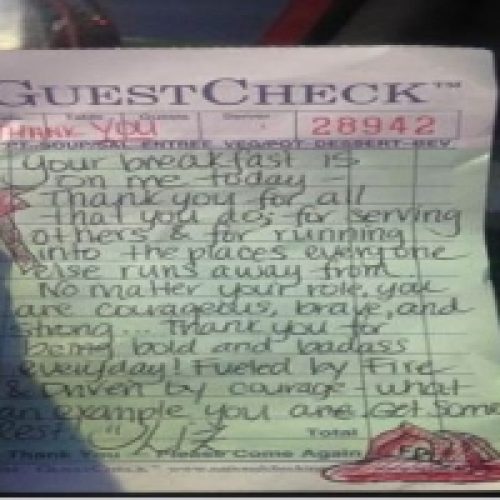 GUESTCHECK™
Table Guests Server
THANK YOU 28942
APPT-SOUP/SAL-ENTREE-VEG/POT-DESSERT-BEV
Your breakfast is
on me today -
Thank you for all
that you do; for serving
others & for running
into the places everyone
else runs away from.
No matter your role, you
are courageous, brave, and
strong... Thank you for
being bold and badass
everyday! Fueled by Fire
& Driven by courage - what
an example you are. Get Some
Rest! Liz
Total
Thank You Please Come Again